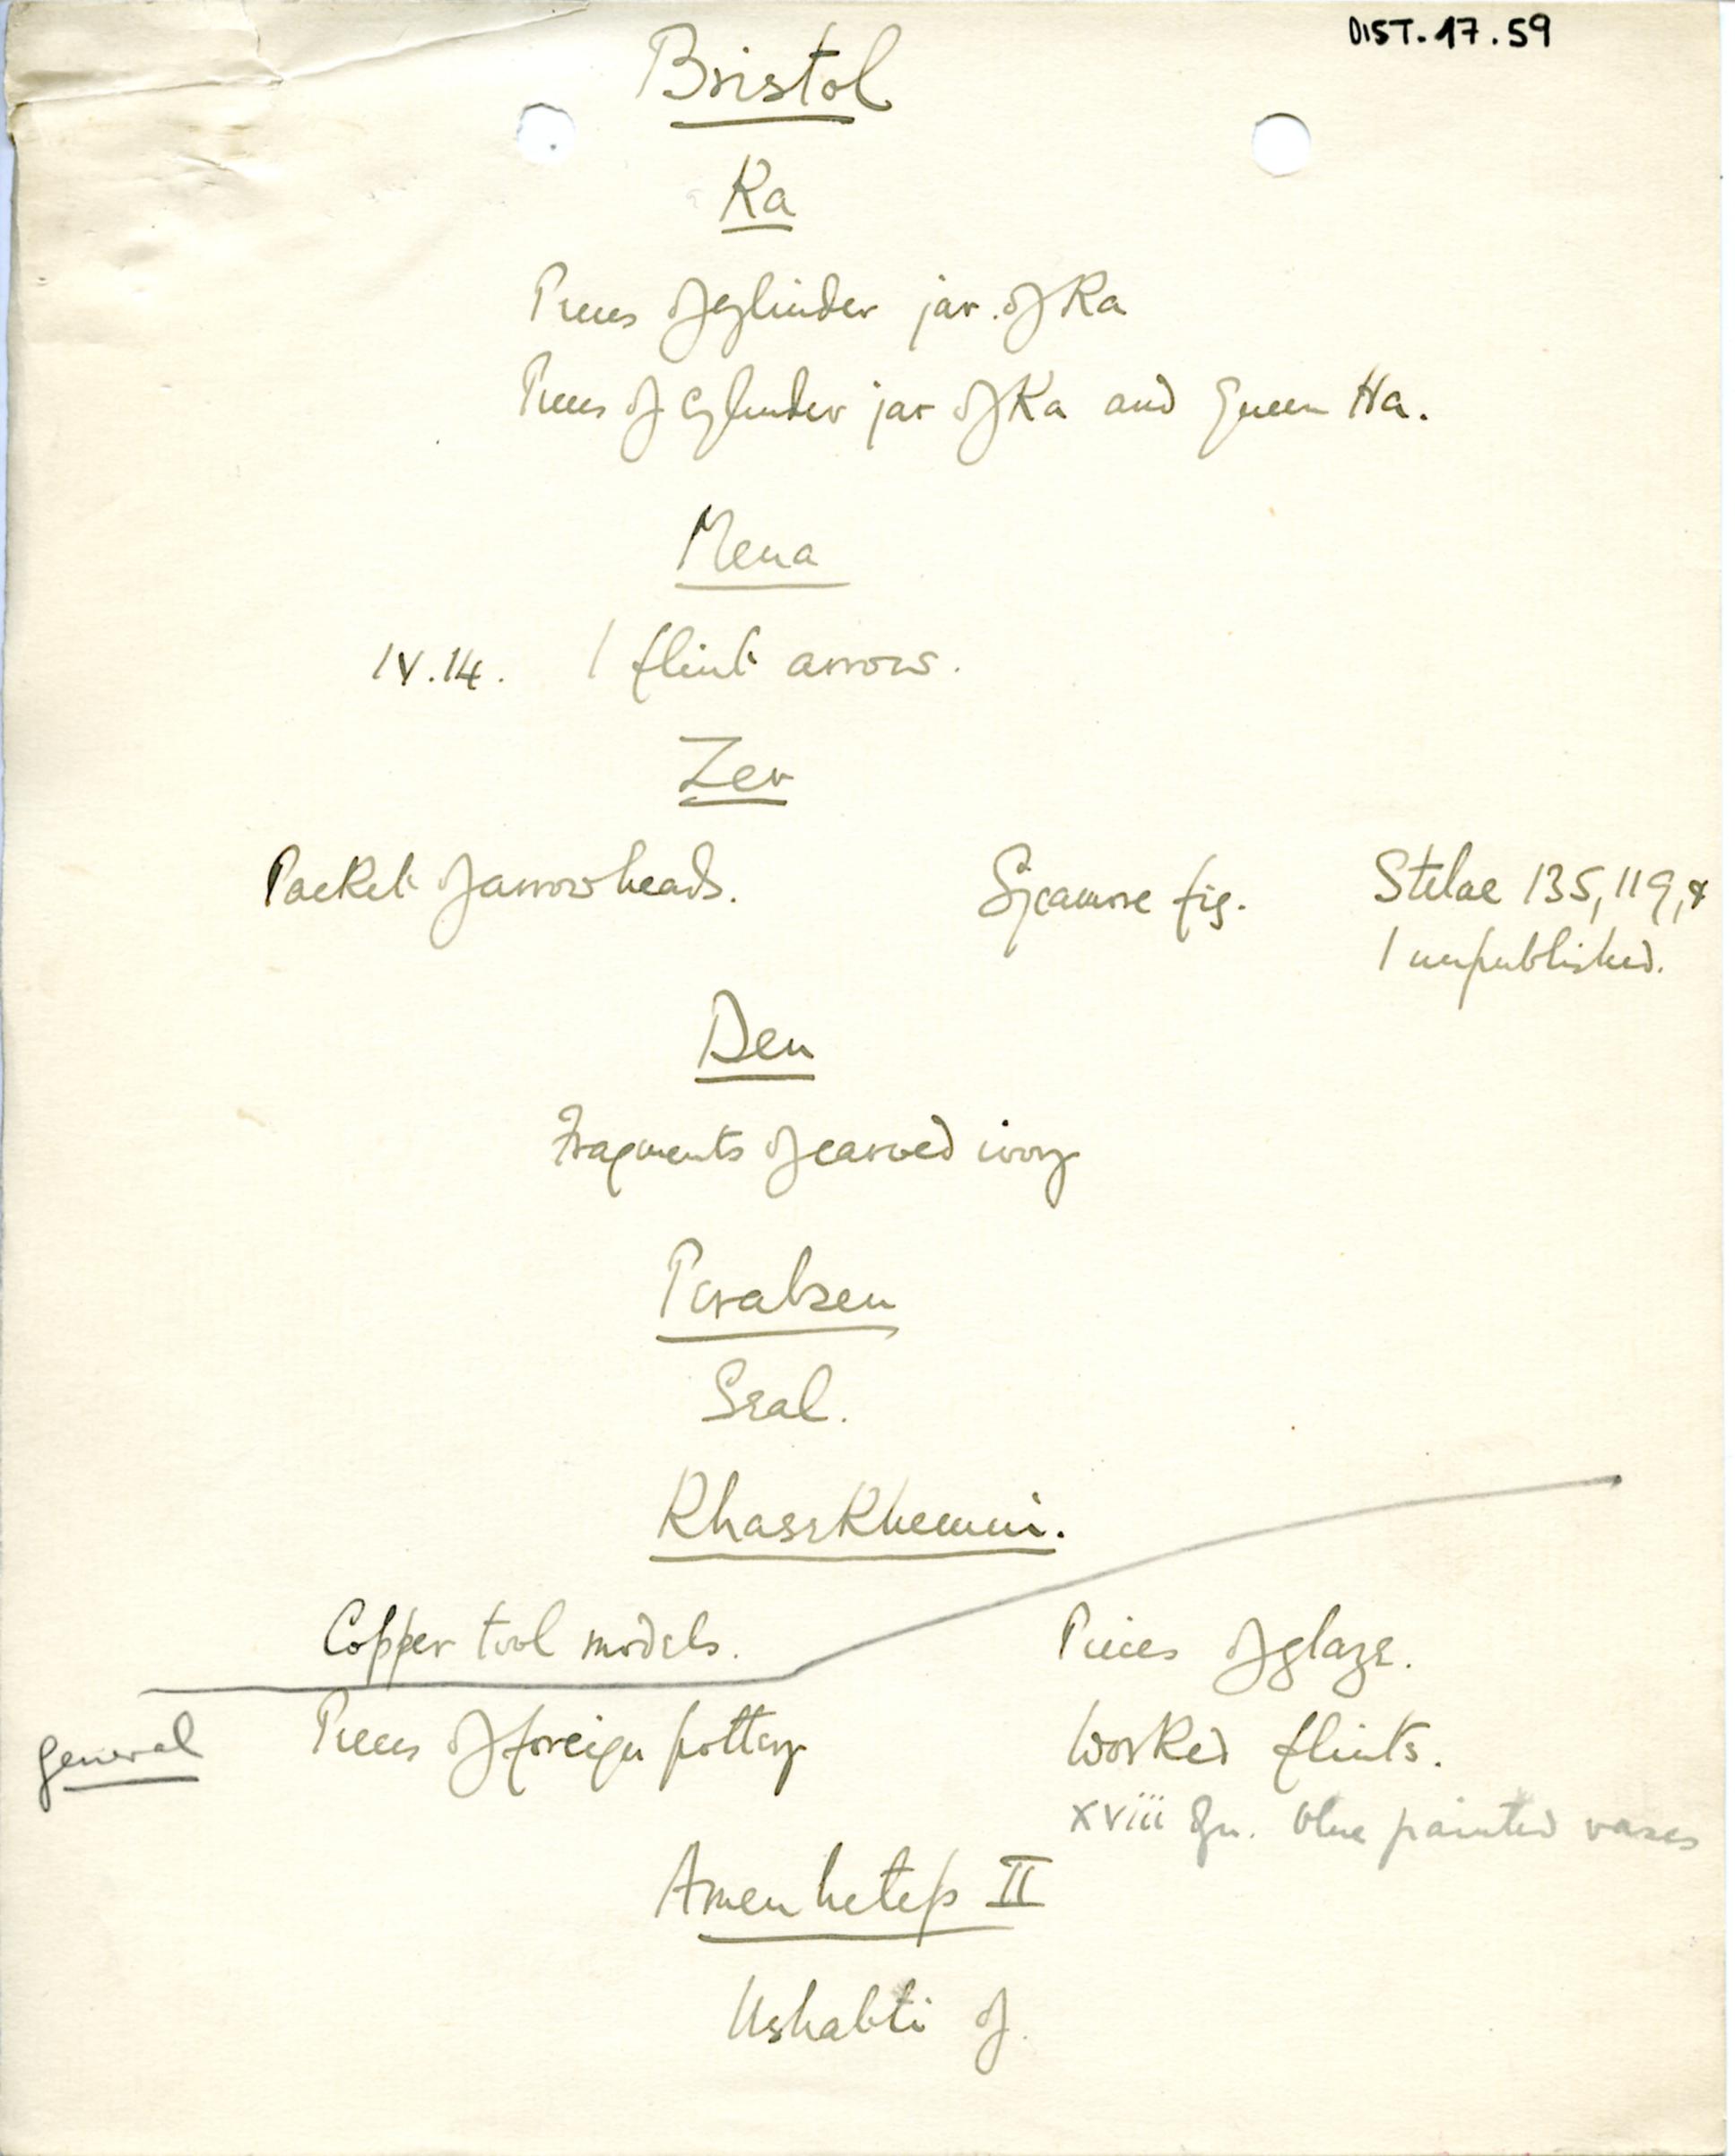 DIST.17.59
Bristol
Ka
Pieces of cylinder jar of Ka
Pieces of cylinder jar of Ka and Queen Ha.
Mena
IV.14. 1 flint arrow.
Zer
Packet of arrowheads. Sycamore fig. Stelae 135, 119, &
1 unpublished.
Den
Fragments of carved ivory
Perabsen
Seal.
Khasekhemui.
Copper tool models. Pieces of glaze.
general Pieces of foreign pottery Worked flints.
XViii Dyn. blue painted vases
Amenhetep II
Ushabti of